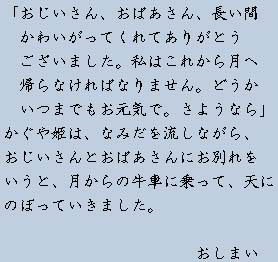 「おじいさん、おばあさん、長い間
かわいがってくれてありがとう
ございました。私はこれから月へ
帰らなければなりません。どうか
いつまでもお元気で。さようなら」
かぐや姫は、なみだを流しながら、
おじいさんとおばあさんにお別れを
いうと、月からの牛車に乗って、天に
のぼっていきました。
おしまい